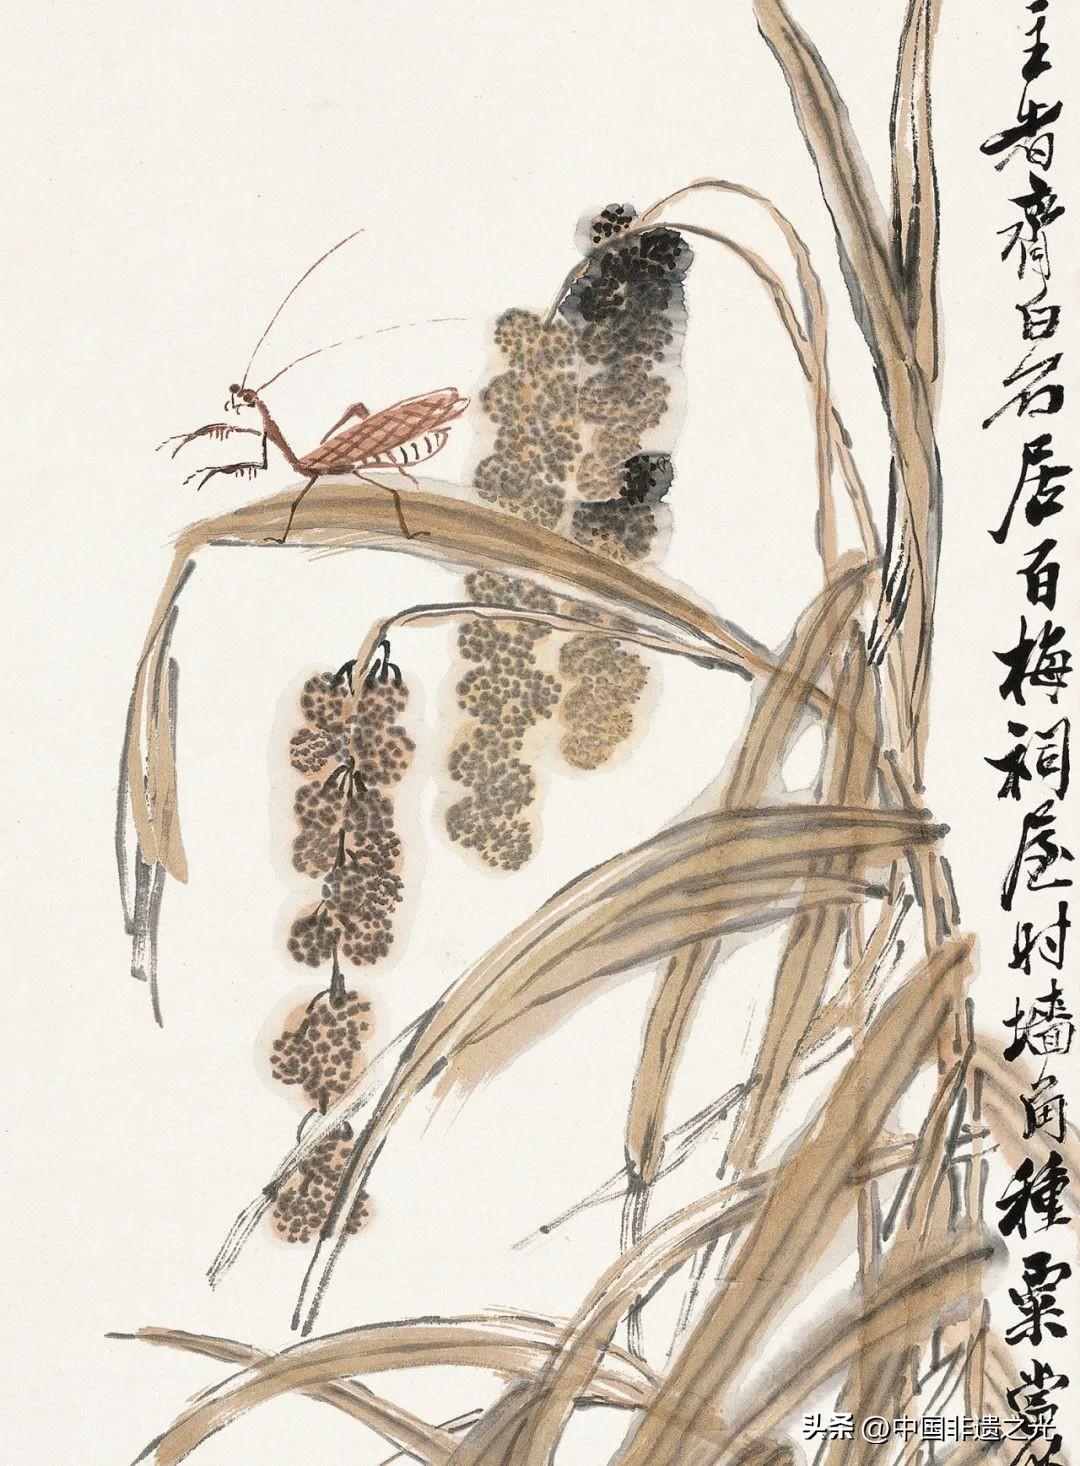 主者齊白石居百梅祠屋时墙角種粟嘗
头条 @中国非遗之光